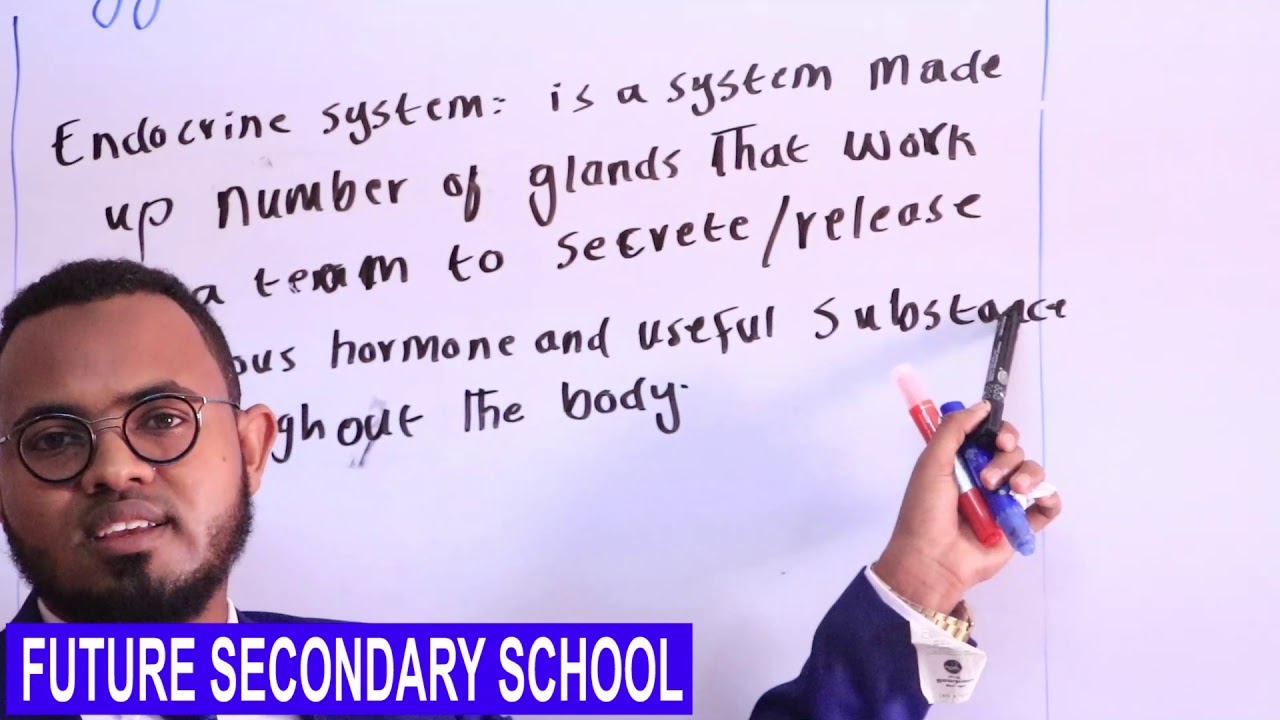 Endocrine system:- is a system made
up number of glands That work
a team to secrete/release
ous hormone and useful substance
ghout The body.
FUTURE SECONDARY SCHOOL